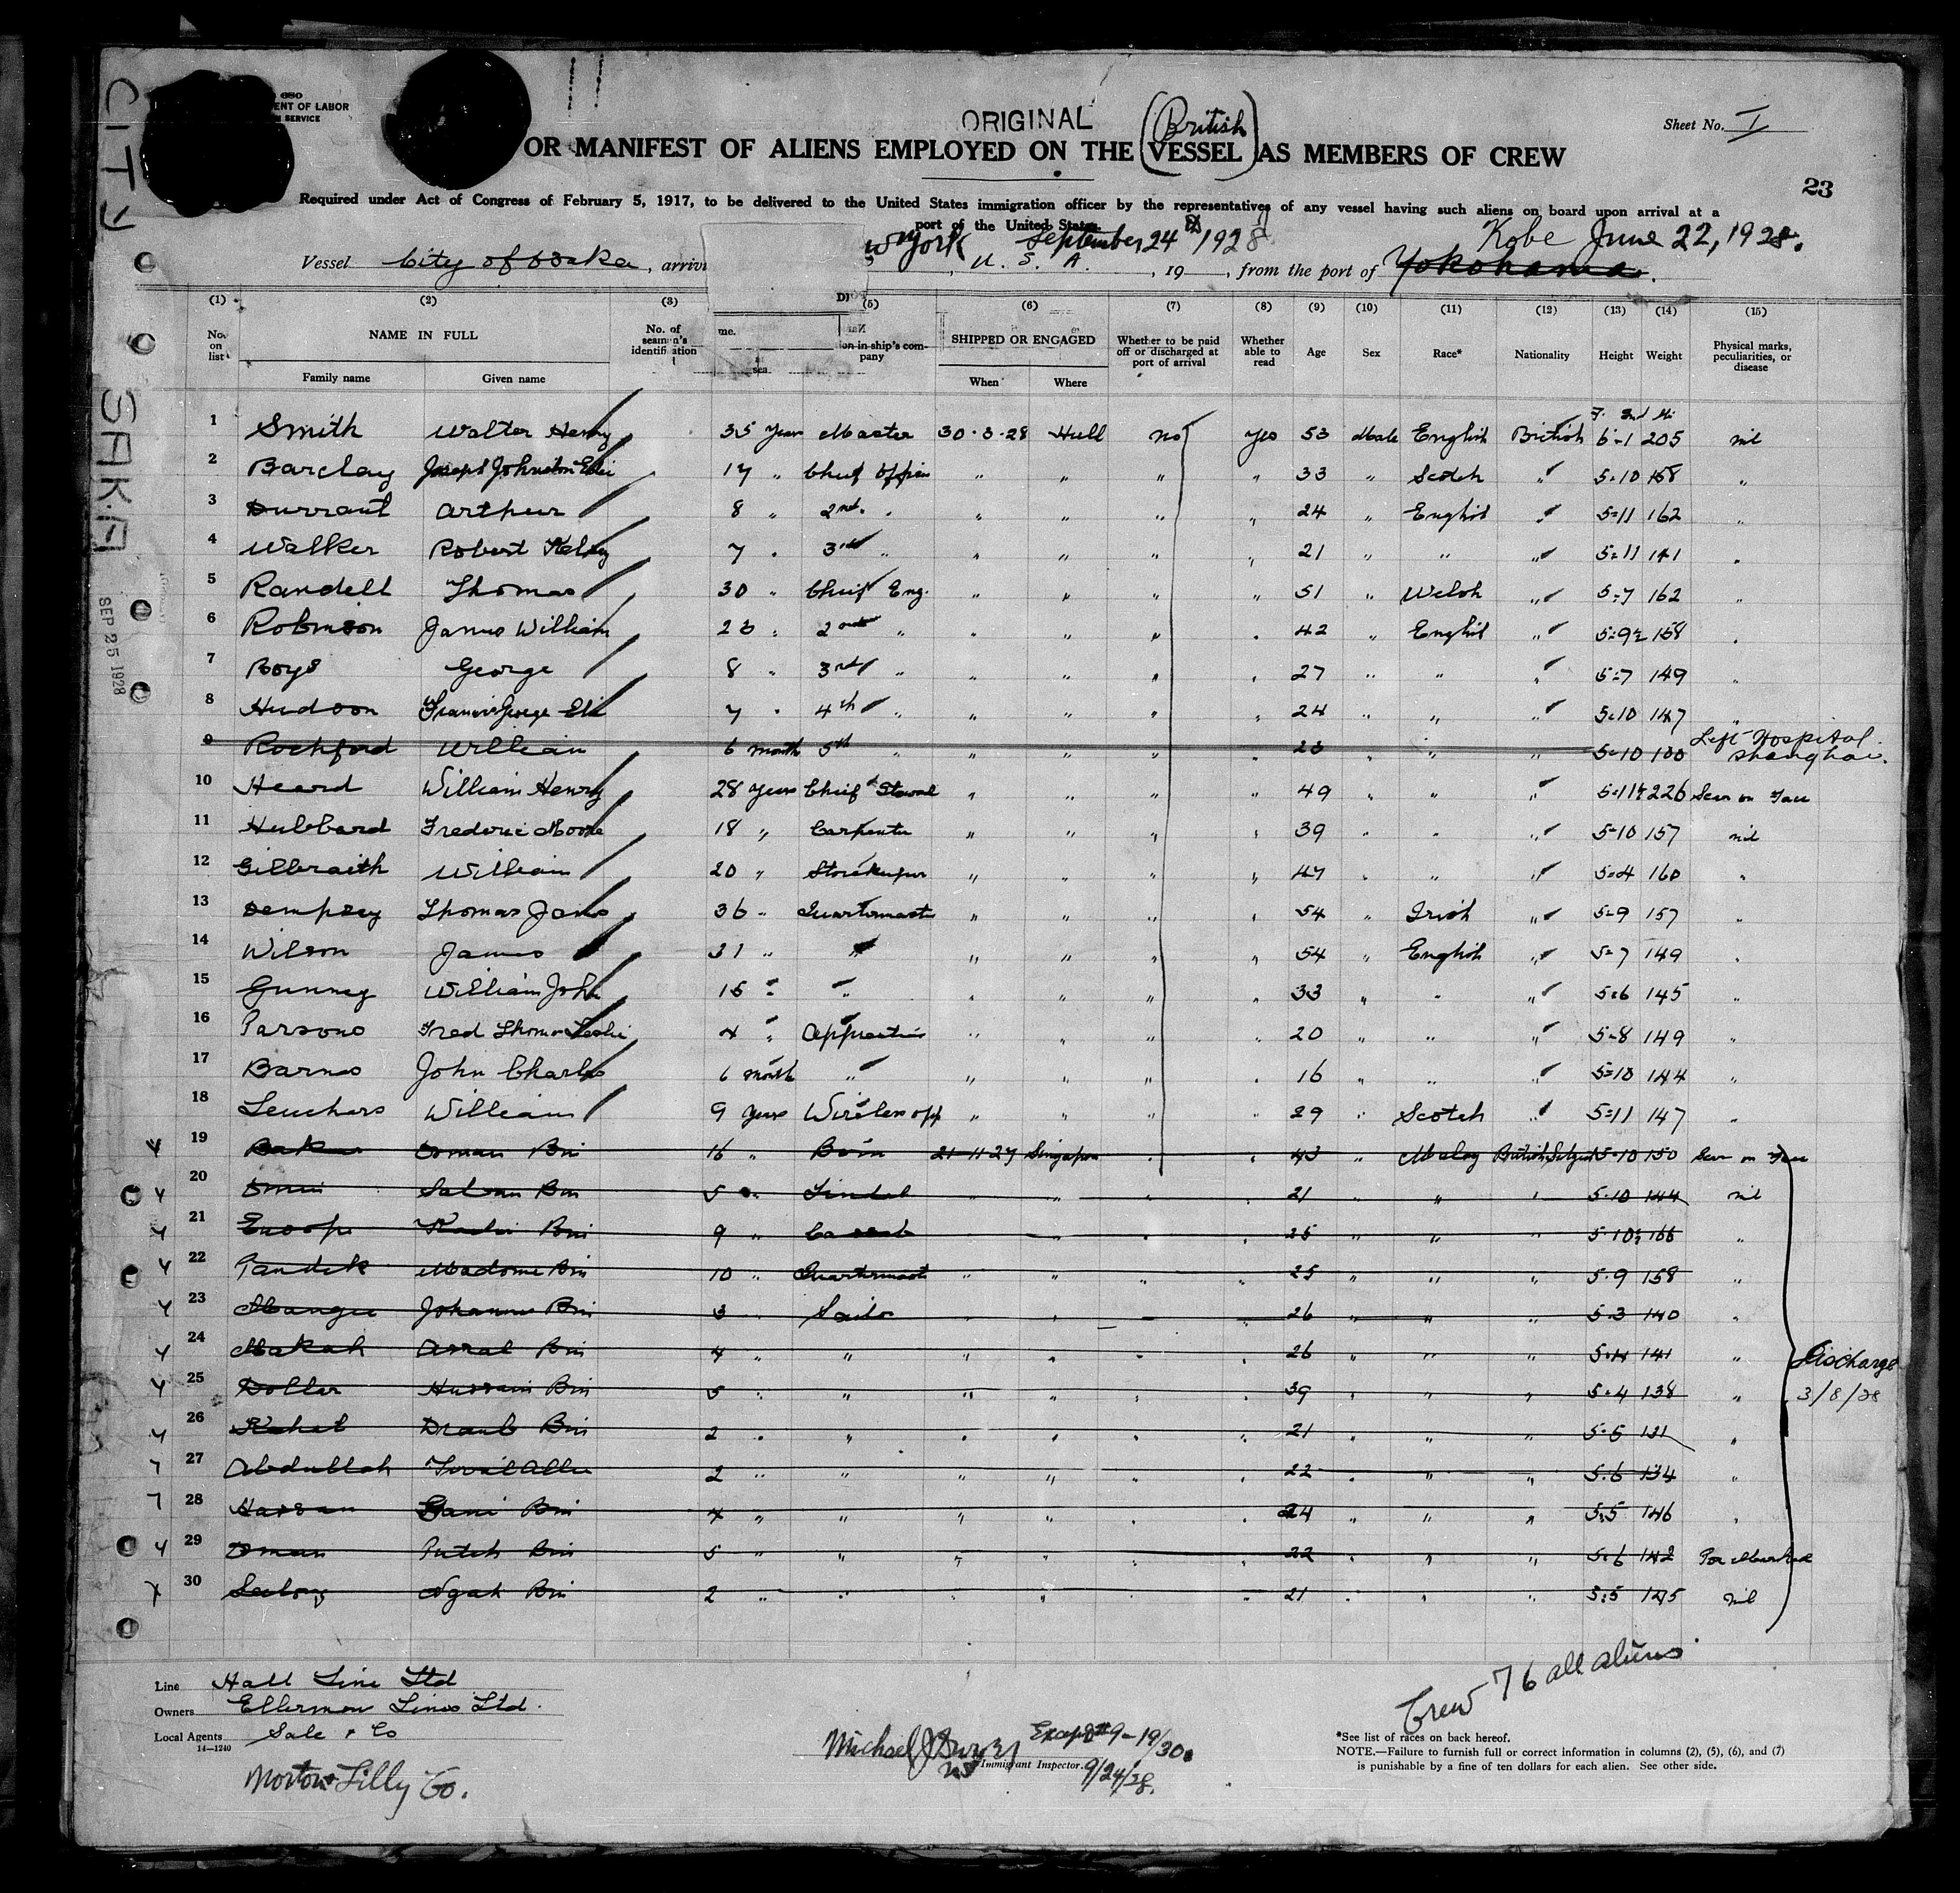 680
ENT OF LABOR
SERVICE
ORIGINAL
(British)
Sheet No. I
OR MANIFEST OF ALIENS EMPLOYED ON THE (VESSEL) AS MEMBERS OF CREW
23
Required under Act of Congress of February 5, 1917, to be delivered to the United States immigration officer by the representatives of any vessel having such aliens on board upon arrival at a
port of the United States.
w York September 24 1928 Kobe June 22, 1928.
Vessel City of Osaka, arrivi , U. S. A., 19 , from the port of Yokohama.
CITY OSAKA
SEP 25 1928
(1) (2) (3) (5) (6) (7) (8) (9) (10) (11) (12) (13) (14) (15)
No. on list NAME IN FULL Family name Given name No. of seamen's identification me. sea ion in ship's company SHIPPED OR ENGAGED When Where Whether to be paid off or discharged at port of arrival Whether able to read Age Sex Race* Nationality Height Weight Physical marks, peculiarities, or disease
1 Smith Walter Henry 35 Years Master 30-3-28 Hull no yes 53 Male English British 6-1 205 nil
2 Barclay Joseph Johnston 17 " Chief Officer " " " " 33 " Scotch " 5-10 158 "
3 Durrant Arthur 8 " 2nd. " " " " " 24 " English " 5-11 162 "
4 Walker Robert 7 " 3rd " " " " " 21 " " " 5-11 141 "
5 Randell Thomas 30 " Chief Eng. " " " " 51 " Welsh " 5-7 162 "
6 Robinson James William 23 " 2nd " " " " " 42 " English " 5-9½ 158 "
7 Boys George 8 " 3rd " " " " " 27 " " " 5-7 149 "
8 Hudson Francis George 7 " 4th " " " " " 24 " " " 5-10 147 "
9 Rochford William 6 month 5th " " " " " 23 " " " 5-10 130 Left Hospital Shanghai.
10 Heard William Henry 28 Years Chief Steward " " " " 49 " " " 5-11½ 226 Scar on Face
11 Hubbard Frederic Moore 18 " Carpenter " " " " 39 " " " 5-10 157 nil
12 Gilbraith William 20 " Storekeeper " " " " 47 " " " 5-4 160 "
13 Dempsey Thomas James 36 " Quartermaster " " " " 54 " Irish " 5-9 157 "
14 Wilson James 31 " " " " " " 54 " English " 5-7 149 "
15 Gunney William John 15 " " " " " " 33 " " " 5-6 145 "
16 Parsons Fred Thomas Leslie 4 " Apprentice " " " " 20 " " " 5-8 149 "
17 Barnes John Charles 6 month " " " " " 16 " " " 5-10 144 "
18 Leuchars William 9 Years Wireless opp " " " " 29 " Scotch " 5-11 147 "
19 Osman Bin 16 " 21-11-27 Singapore " " 43 " Malay British Subject 5-10 150 Scar on Face
20 Salman Bin 5 " Tindal " " " " 21 " " " 5-10 144 nil
21 Bin 9 " " " " " 25 " " " 5-10½ 166 "
22 Pandek Bin 10 " Quartermaster " " " " 25 " " " 5-9 158 "
23 Bin 3 " Sailor " " " " 26 " " " 5-3 140 "
24 Makah Bin 4 " " " " " " 26 " " " 141 "
25 Dollar Hussain Bin 5 " " " " " " 39 " " " 5-4 138 "
Discharge
3/8/28
26 Bin 2 " " " " " " 21 " " " 5-5 131 "
27 Abdullah 2 " " " " " " 22 " " " 5-6 134 "
28 Hassan Bin 4 " " " " " " 24 " " " 5-5 146 "
29 Puteh Bin 5 " " " " " " 22 " " " 5-6 142
30 Ngah Bin 2 " " " " " " 21 " " " 5-5 145 nil
Crew 76 all aliens
Line Hall Line Ltd
Owners Ellerman Lines Ltd.
Local Agents Sale & Co
14-1240
Morton Lilly Co.
Michael J Except #9-19/30.
Immigrant Inspector. 9/24/28.
*See list of races on back hereof.
NOTE.—Failure to furnish full or correct information in columns (2), (5), (6), and (7)
is punishable by a fine of ten dollars for each alien. See other side.